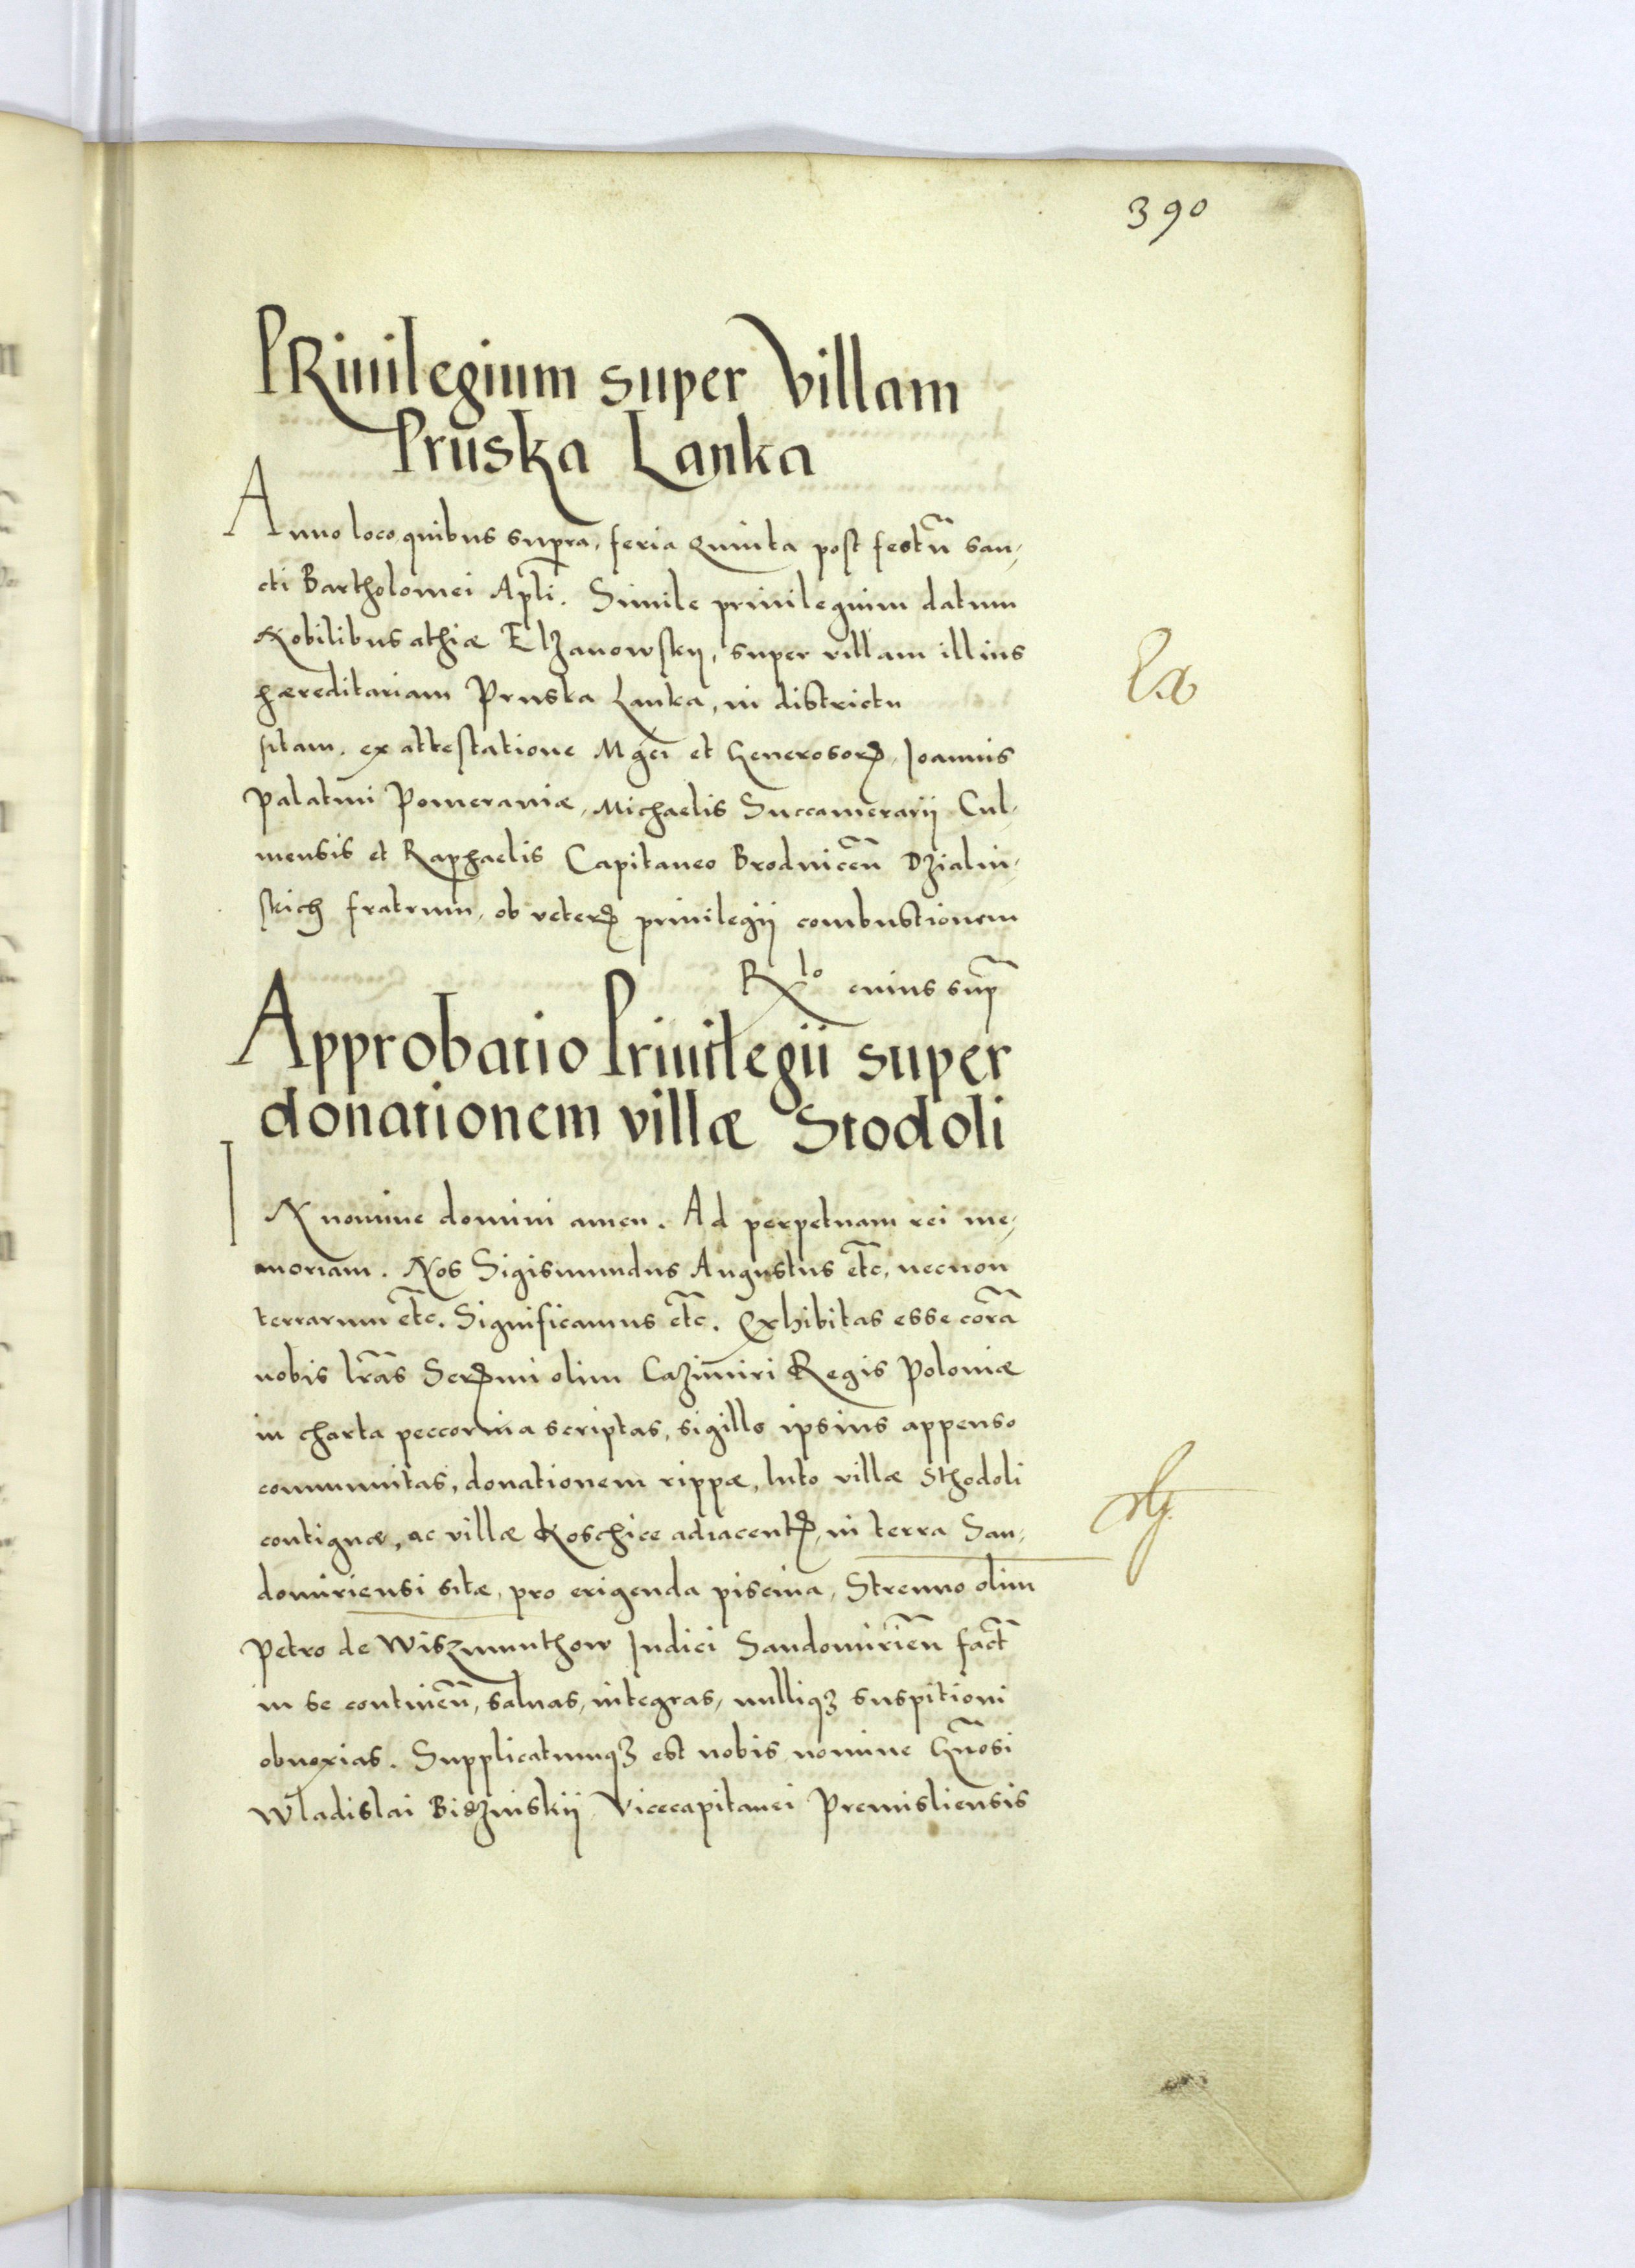 390
PRiuilegium super Villam
Pruska Lanka
Anno loco quibus supra, feria Quinta post festũ san,
cti Bartholomei Apli. Simile priuilegium datum
Nobilibus athiæ Elzanowskij, super villam illius
hæreditariam Pruska Lanka, in districtu
sitam. ex attestatione Mgci et Generosorꝝ, Joannis
Palatini Pomeraniæ, Michaelis Succamerarij Cul,
mensis et Raphaelis Capitaneo Brodnicen̄ Dzialin,
skich fratrum, ob veterꝝ priuilegij combustionem
Rlo cuius sup̄
Approbatio Priuilegii super
donationem villæ Stodoli
IN nomine domini amen. Ad perpetuam rei me,
moriam. Nos Sigismundus Augustus etc̄, necnon
terrarum etc̄. Significamus etc̄. Exhibitas esse corā
nobis lrās Serꝝmi olim Cazimiri Regis Poloniæ
in charta peccorina scriptas, sigillo ipsius appenso
communitas, donationem rippæ, luto villæ Sthodoli
contiguæ, ac villæ Koschice adiacentꝝ, in terra San,
domiriensi sitæ, pro erigenda piscina, Strenuo olim
Petro de Wiszmunthow Judici Sandomirien̄ fact̄
in se continen̄, saluas, integras, nulliqꝫ suspitioni
obnoxias. Supplicatumqꝫ est nobis nomine Gn̄osi
Wladislai Biszinskij Vicecapitanei Premisliensis
Ex